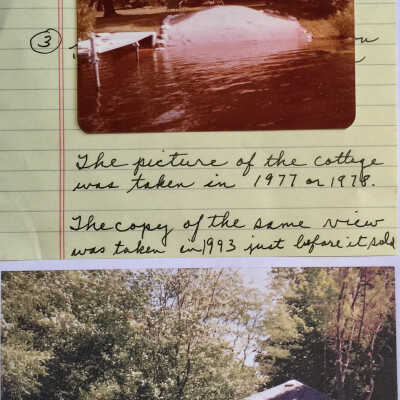 ③
The picture of the cottege
was taken in 1977 or 1978.
The copy of the same view
was taken in 1993 just before it sold